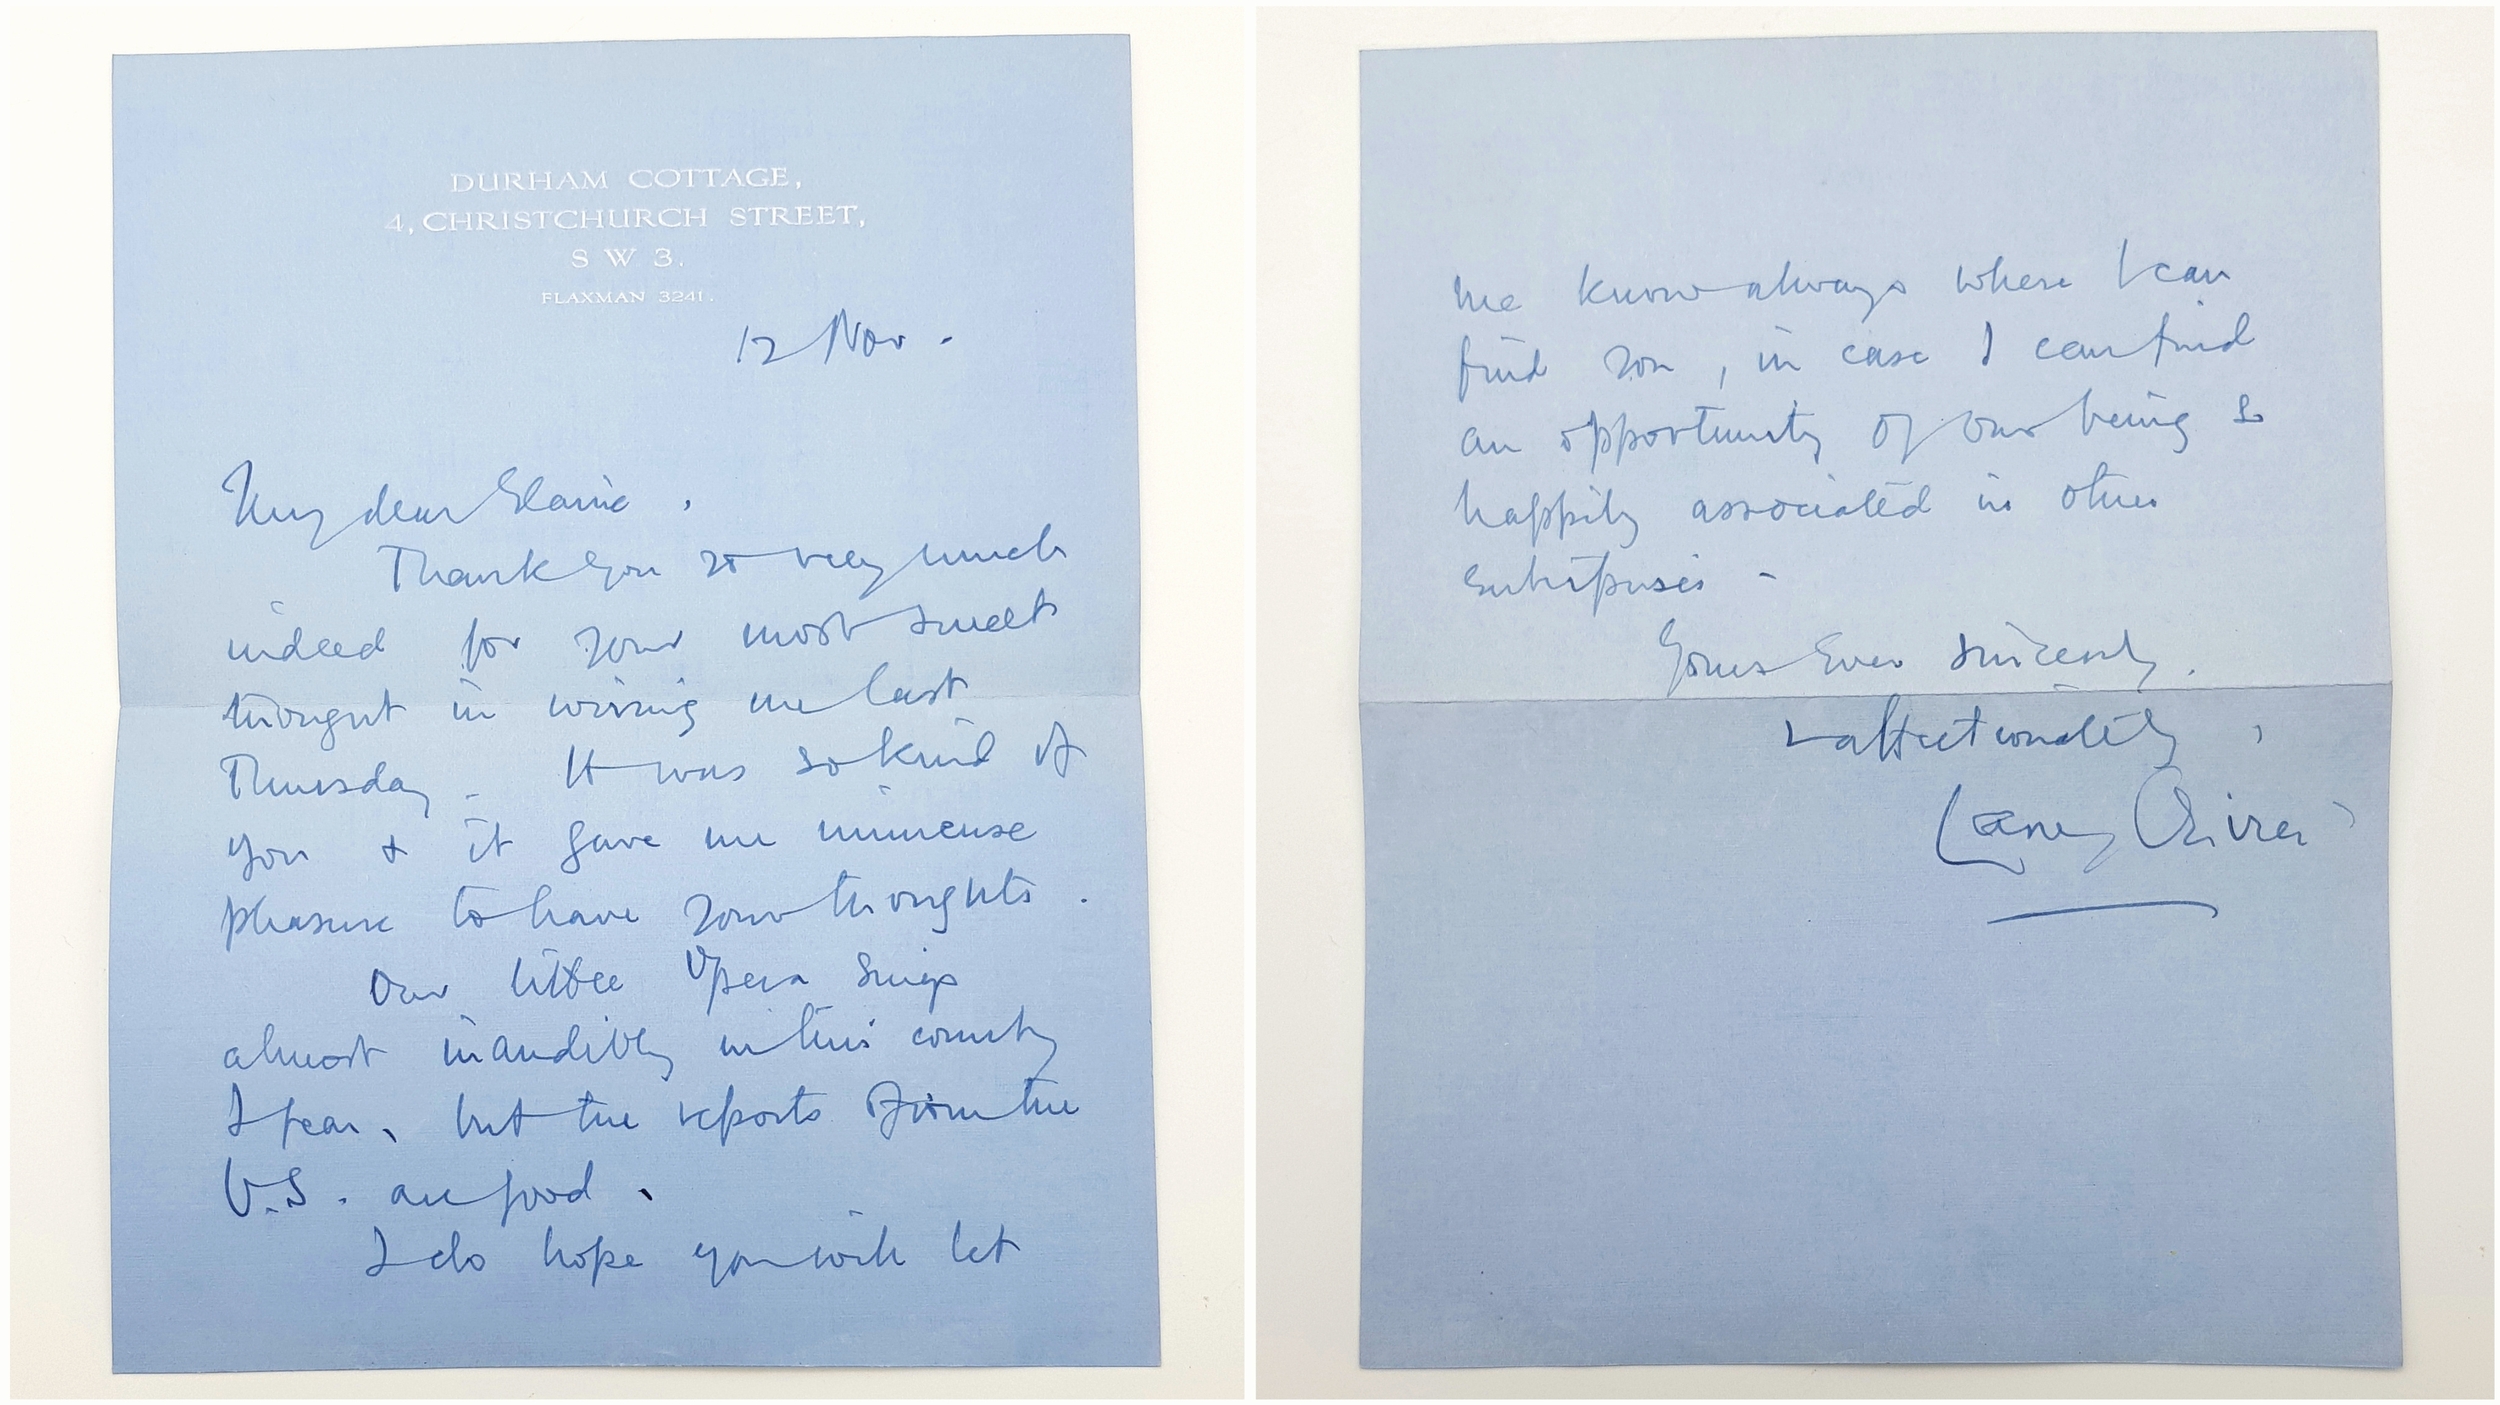 DURHAM COTTAGE,
4, CHRISTCHURCH STREET,
S W 3.
FLAXMAN 3241.
12 Nov.
My dear Elaine,
Thank you so very much
indeed for your most sweet
thought in wiring me last
Thursday. It was so kind of
you & it gave me immense
pleasure to have your thoughts.
Our little Opera sings
almost inaudibly in this country
I fear, but the reports from the
U.S. are good.
I do hope you will let
me know always where I can
find you, in case I can find
an opportunity of our being so
happily associated in other
enterprises -
Yours Ever sincerely,
& affectionately,
Larry Olivier